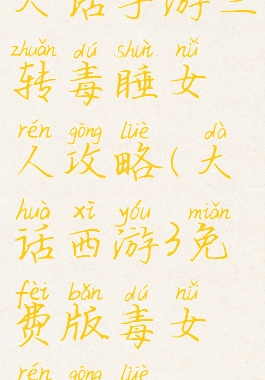 大话手游三
zhuǎn dú shuì nǚ
转毒睡女
rén gōng lüè dà
人攻略(大
huà xī yóu miǎn
话西游3免
fèi bǎn dú nǚ
费版毒女
rén gōng lüè